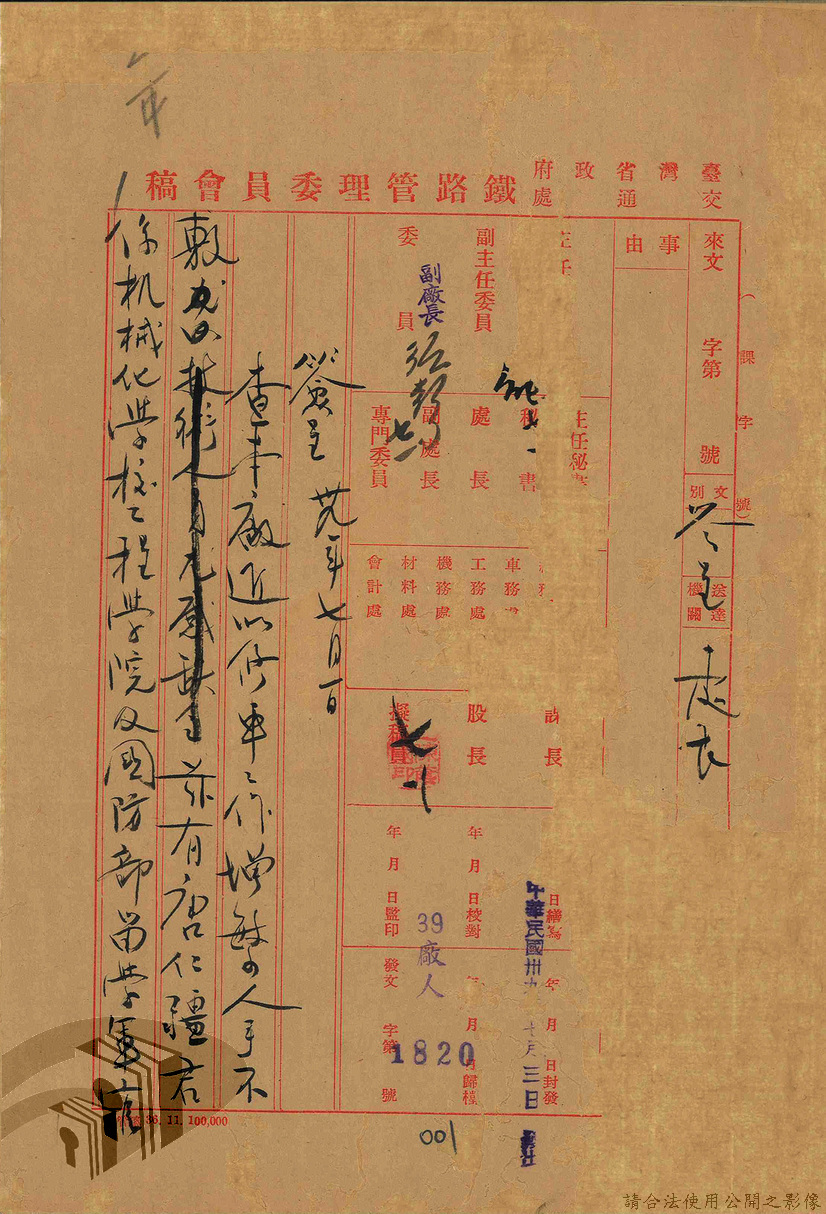 年
臺灣省政府
交通處
鐵路管理委員會稿
(課字號)
來文 字第 號
文別
簽呈
送達機關
處長
事由
主任
副主任委員
委員
副廠長
主任秘書
秘書
處長
副處長
專門委員
七
車務處
工務處
機務處
材料處
會計處
課長
股長
擬稿員
七
日繕寫
年 月 日校對
年 月 日監印
年 月 日封發
年 月 日歸檔
發文 字第 號
中華民國卅九年七月三日
39廠人
1820
簽呈 卅九年七月一日
查本廠近以修車工作增繁人手不
敷 茲有唐仁疆君
係机械化學校工程學院及國防部留學軍官
36. 11. 100,000
001
請合法使用公開之影像